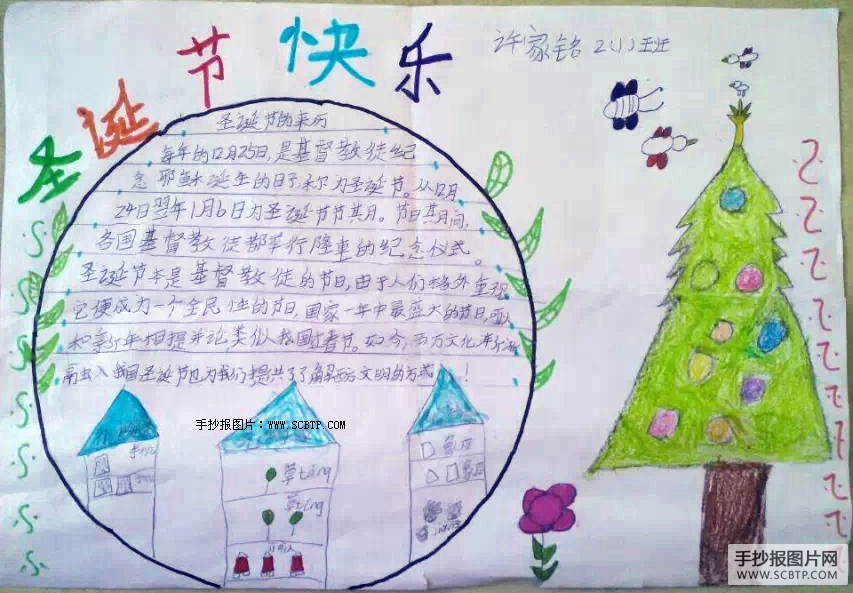 圣诞节快乐
许家铭 2(1)班
圣诞节的来历
每年的12月25日,是基督教徒纪
念耶稣诞生的日子,称为圣诞节。从12月
24日翌年1月6日为圣诞节节其月。节日其月间,
各国基督教徒都举行隆重的纪念仪式。
圣诞节本是基督教徒的节日,由于人们格外重视
它便成为一个全民性的节日,国家一年中最盛大的节日,可以
和新年相提并论类似我国过春节。如今,西方文化
入我国圣诞节也为我们提共了了解西方文明的方式!
手抄报图片:www.SCBTP.COM
手抄报图片网
WWW.SCBTP.COM